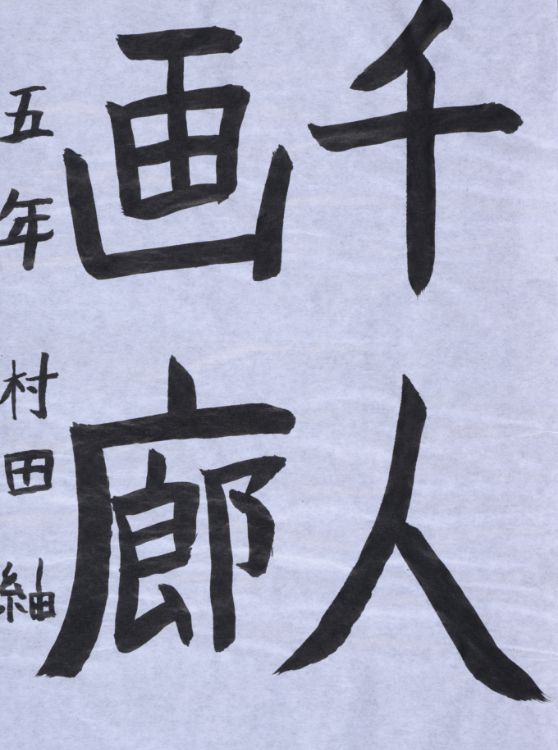 千人
画廊
五年 村田紬